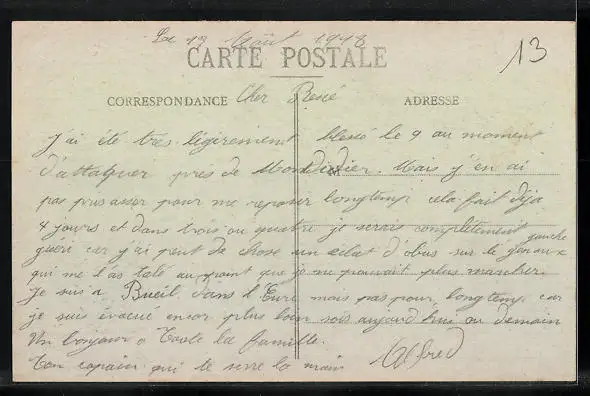 Le 13 Août 1918
13
CARTE POSTALE
CORRESPONDANCE
ADRESSE
Cher René
J'ai été tres légérement blessé le 9 au moment
d'attaquer près de Montdidier. Mais j'en ai
pas pris asser pour me reposer longtemp cela fait déja
4 jours et dans trois ou quatre je serais complètement
gueri car j'ai peut de chose un eclat d'obus sur le genoux gauche
qui me l'as talé au point que je ne pouvait plus marcher.
Je suis a Bueil dans l'Eure mais pas pour longtemp car
je suis évacué encor plus loin sois aujourd hui ou demain
Un bonjour a Toute la famille.
Ton copain qui te serre la main Alfred